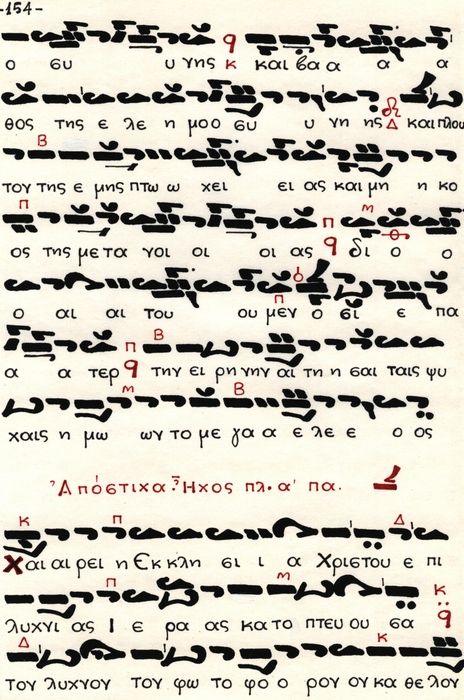 -154-
ο ευ υ γης κ και βα α α α
θος της ε λε η μοο ευ υ γη ης Δ και πλου
Β
του της ε μης πτω ω χει ει ας και μη η κο
π π μ
ος της με τα γοι οι οι ας q δι ο ο
ο αι αι του ου μεν ο σι ε πα
π
π Β
α α τερ q την ει ρη νην αι τη η σαι ταις ψυ
μ Β
χαις η μω ων το με γα α ε λε ε ο ος
Ἀπόστιχα. Ἦχος πλ. α' πα.
κ π Δ
Χαι αι ρει η Εκ κλη σι ι α Χριστου ε πι
π μ κ
λυχνι ας Ι ε ρα ας κα το πτευ ου σα q
Δ κ
τον λυχνον τον φω το φο ο ρον ον κα θε λον